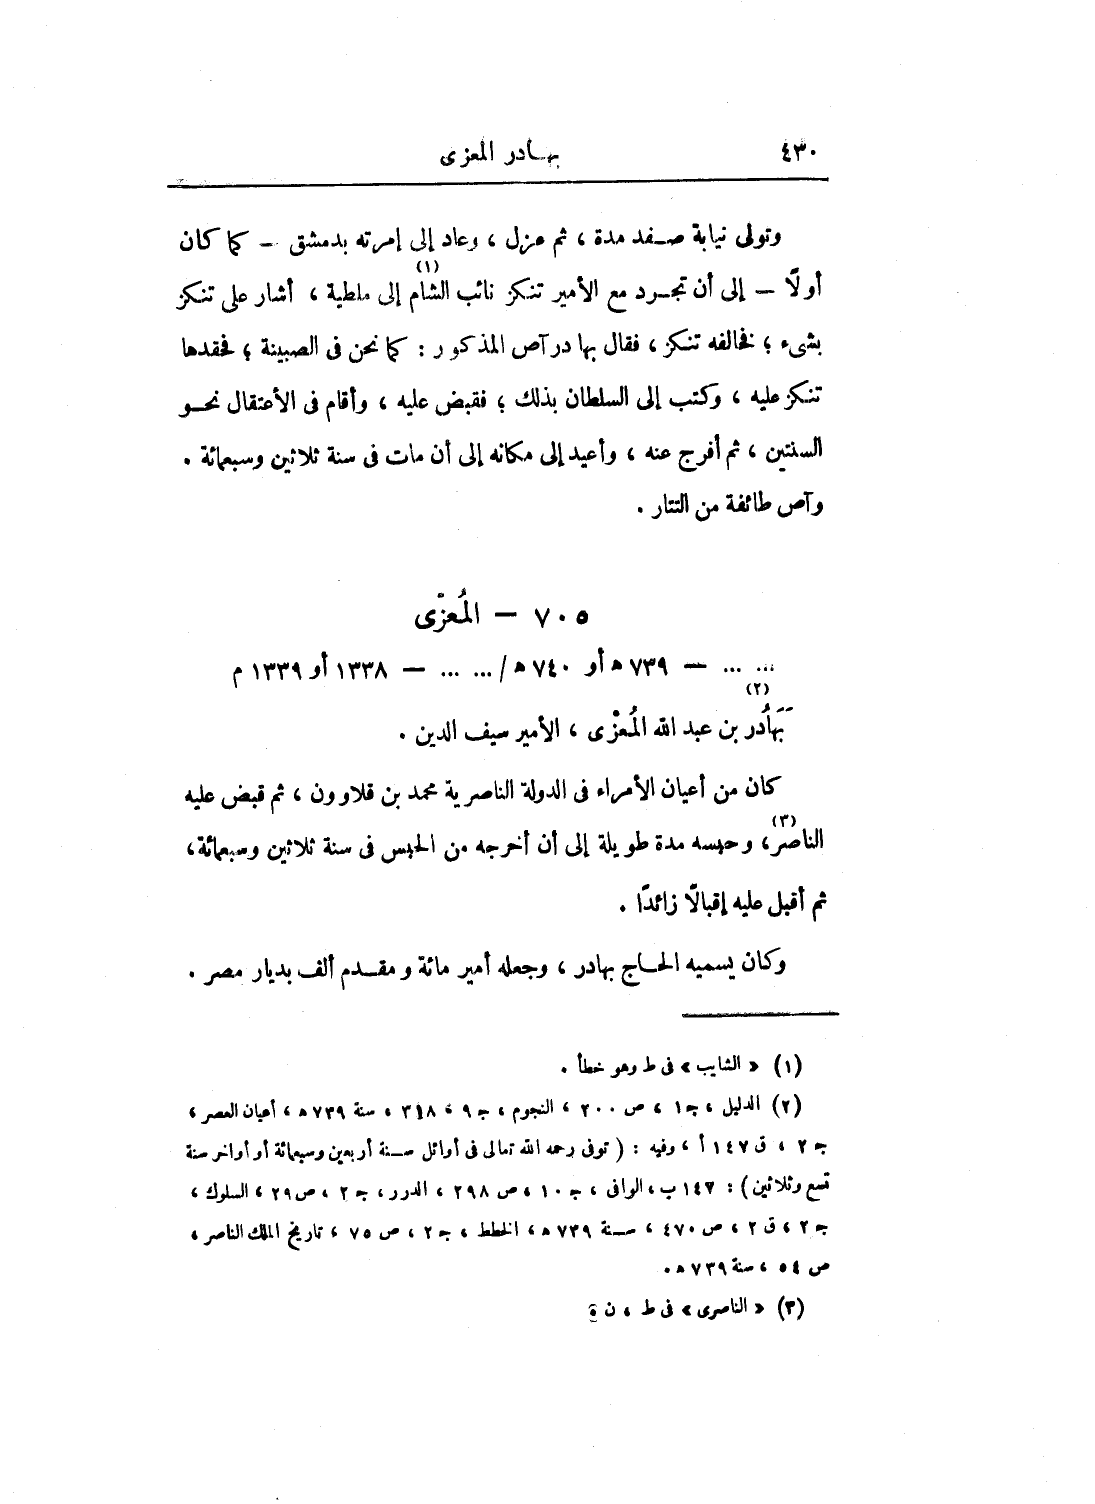 ٤٣٠ بهادر المعزى
وتولى نيابة صفد مدة ، ثم عزل ، وعاد إلى إمرته بدمشق – كما كان
أولًا – إلى أن تجرد مع الأمير تنكز نائب الشام (١) إلى ملطية ، أشار على تنكز
بشىء ؛ فخالفه تنكز ، فقال بها درآص المذكور : كما نحن فى الصبينة ؛ فحقدها
تنكز عليه ، وكتب إلى السلطان بذلك ؛ فقبض عليه ، وأقام فى الأعتقال نحو
السنتين ، ثم أفرج عنه ، وأعيد إلى مكانه إلى أن مات فى سنة ثلاثين وسبعمائة .
وآص طائفة من التتار .
٧٠٥ – المُعزّى
... ... – ٧٣٩ ه أو ٧٤٠ ه / ... ... – ١٣٣٨ أو ١٣٣٩ م
بَهَادُر بن عبد الله المُعزْى (٢) ، الأمير سيف الدين .
كان من أعيان الأمراء فى الدولة الناصرية محمد بن قلاوون ، ثم قبض عليه
الناصر (٣) ، وحبسه مدة طويلة إلى أن أخرجه من الحبس فى سنة ثلاثين وسبعمائة ،
ثم أقبل عليه إقبالًا زائدًا .
وكان يسميه الحاج بهادر ، وجعله أمير مائة ومقدم ألف بديار مصر .
(١) « الشايب » فى ط وهو خطأ .
(٢) الدليل ، ج١ ، ص ٢٠٠ ، النجوم ، ج٩ ، ٣١٨ ، سنة ٧٣٩ ه ، أعيان العصر ،
ج ٢ ، ق ١٤٧ أ ، وفيه : ( توفى رحمه الله تعالى فى أوائل سنة أربعين وسبعمائة أو أواخر سنة
تسع وثلاثين ) : ١٤٧ ب ، الوافى ، ج ١٠ ، ص ٢٩٨ ، الدرر ، ج ٢ ، ص ٢٩ ، السلوك ،
ج ٢ ، ق ٢ ، ص ٤٧٠ ، سنة ٧٣٩ ه ، الخطط ، ج ٢ ، ص ٧٥ ، تاريخ الملك الناصر ،
ص ٥٤ ، سنة ٧٣٩ ه .
(٣) « الناصرى » فى ط ، ن